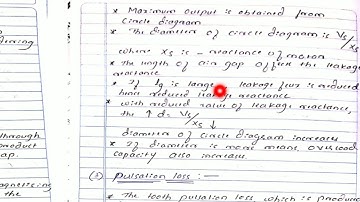 * Maximum output is obtained from
circle diagram
* The diameter of circle diagram is Vs/
Xs
where Xs is - reactance of motor
* The length of air gap affect the leakage
reactance
* If lg is large leakage flux is reduced
hence reduced leakage reactance
* with reduced value of leakage reactance,
the ↑ d = Vs/
Xs ↓
diameter of circle diagram increases
* If diameter is more means overload
capacity also increase.
(2) Pulsation loss :-
* The tooth pulsation loss which is produce
ering
through
duct
ap.